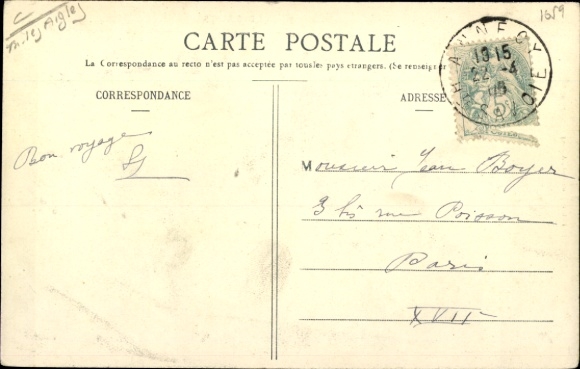 C
Th. les Aigles
1659
CARTE POSTALE
La Correspondance au recto n'est pas acceptée par tous les pays étrangers. (Se renseigner
CORRESPONDANCE
ADRESSE
ANNECY
19 15
22 -4
05
Bon voyage
Monsieur Jean Boyer
3 bis rue Poisson
Paris
XVII